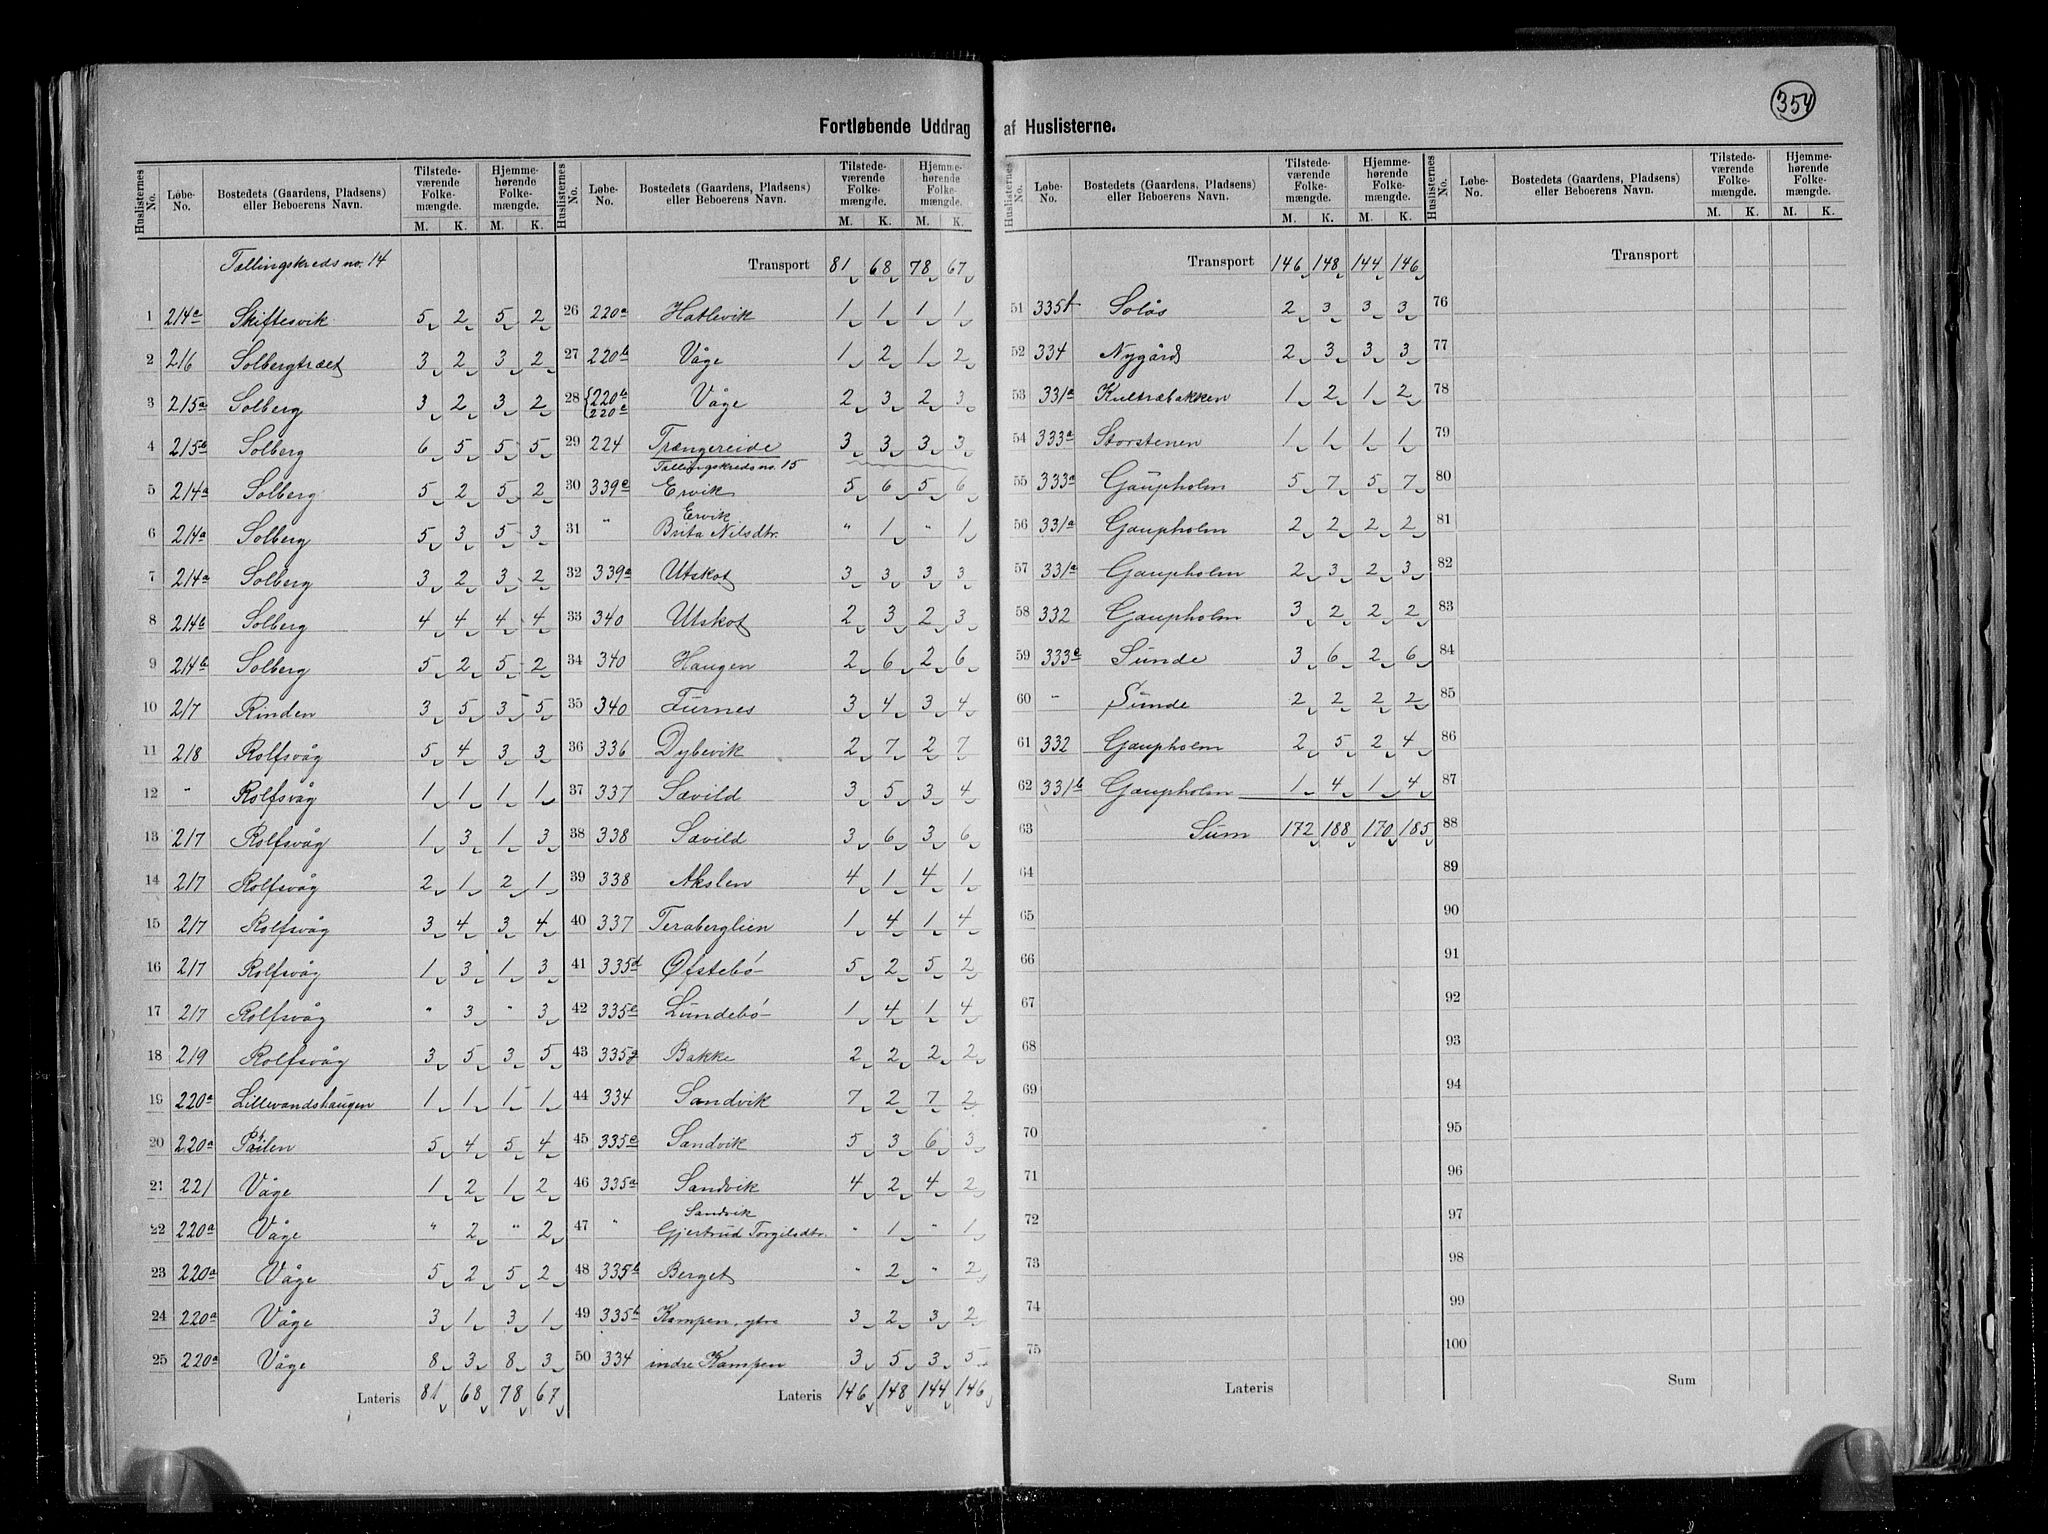 354
Fortløbende Uddrag af Huslisterne.
Huslisternes No. Løbe-No. Bostedets (Gaardens, Pladsens) eller Beboerens Navn. Tilstedeværende Folkemængde. M. K. Hjemmehørende Folkemængde. M. K.
Tællingskreds no. 14
1 214a Skiftesvik 5 2 5 2
2 216 Solbergtræet 3 2 3 2
3 215a Solberg 3 2 3 2
4 215b Solberg 6 5 5 5
5 214a Solberg 5 2 5 2
6 214a Solberg 5 3 5 3
7 214a Solberg 3 2 3 2
8 214b Solberg 4 4 4 4
9 214b Solberg 5 2 5 2
10 217 Rinden 3 5 3 5
11 218 Rolfsvåg 5 4 3 3
12 " Rolfsvåg 1 1 1 1
13 217 Rolfsvåg 1 3 1 3
14 217 Rolfsvåg 2 1 2 1
15 217 Rolfsvåg 3 4 3 4
16 217 Rolfsvåg 1 3 1 3
17 217 Rolfsvåg " 3 " 3
18 219 Rolfsvåg 3 5 3 5
19 220a Lillevandshaugen 1 1 1 1
20 220a 5 4 5 4
21 221 Våge 1 2 1 2
22 220a Våge " 2 " 2
23 220a Våge 5 2 5 2
24 220a Våge 3 1 3 1
25 220a Våge 8 3 8 3
Lateris 81 68 78 67
Huslisternes No. Løbe-No. Bostedets (Gaardens, Pladsens) eller Beboerens Navn. Tilstedeværende Folkemængde. M. K. Hjemmehørende Folkemængde. M. K.
Transport 81 68 78 67
26 220a Hatlevik 1 1 1 1
27 220b Våge 1 2 1 2
28 {220b 220c Våge 2 3 2 3
29 224 Trængereide 3 3 3 3
Tællingskreds no. 15
30 339c Ervik 5 6 5 6
31 " Ervik Brita Nilsdtr. " 1 " 1
32 339a Utskot 3 3 3 3
33 340 Utskot 2 3 2 3
34 340 Haugen 2 6 2 6
35 340 Furnes 3 4 3 4
36 336 Dybevik 2 7 2 7
37 337 Sævild 3 5 3 4
38 338 Sævild 3 6 3 6
39 338 Akslen 4 1 4 1
40 337 Teraberglien 1 4 1 4
41 335d Øfstebø 5 2 5 2
42 335e Lundebø 1 4 1 4
43 335g Bakke 2 2 2 2
44 334 Sandvik 7 2 7 2
45 335c Sandvik 5 3 6 3
46 335a Sandvik 4 2 4 2
47 " Sandvik Gjertrud Torgilsdtr. " 1 " 1
48 335b Berget " 2 " 2
49 335b Kampen, ytre 3 2 3 2
50 334 indre Kampen 3 5 3 5
Lateris 146 148 144 146
Huslisternes No. Løbe-No. Bostedets (Gaardens, Pladsens) eller Beboerens Navn. Tilstedeværende Folkemængde. M. K. Hjemmehørende Folkemængde. M. K.
Transport 146 148 144 146
51 335f Solås 2 3 3 3
52 334 Nygård 2 3 3 3
53 331a Kultræbakken 1 2 1 2
54 333a Storstenen 1 1 1 1
55 333a Gaupholm 5 7 5 7
56 331a Gaupholm 2 2 2 2
57 331a Gaupholm 2 3 2 3
58 332 Gaupholm 3 2 2 2
59 333c Sunde 3 6 2 6
60 " Sunde 2 2 2 2
61 332 Gaupholm 2 5 2 4
62 331b Gaupholm 1 4 1 4
63 Sum 172 188 170 185
64
65
66
67
68
69
70
71
72
73
74
75
Lateris
Huslisternes No. Løbe-No. Bostedets (Gaardens, Pladsens) eller Beboerens Navn. Tilstedeværende Folkemængde. M. K. Hjemmehørende Folkemængde. M. K.
Transport
76
77
78
79
80
81
82
83
84
85
86
87
88
89
90
91
92
93
94
95
96
97
98
99
100
Sum